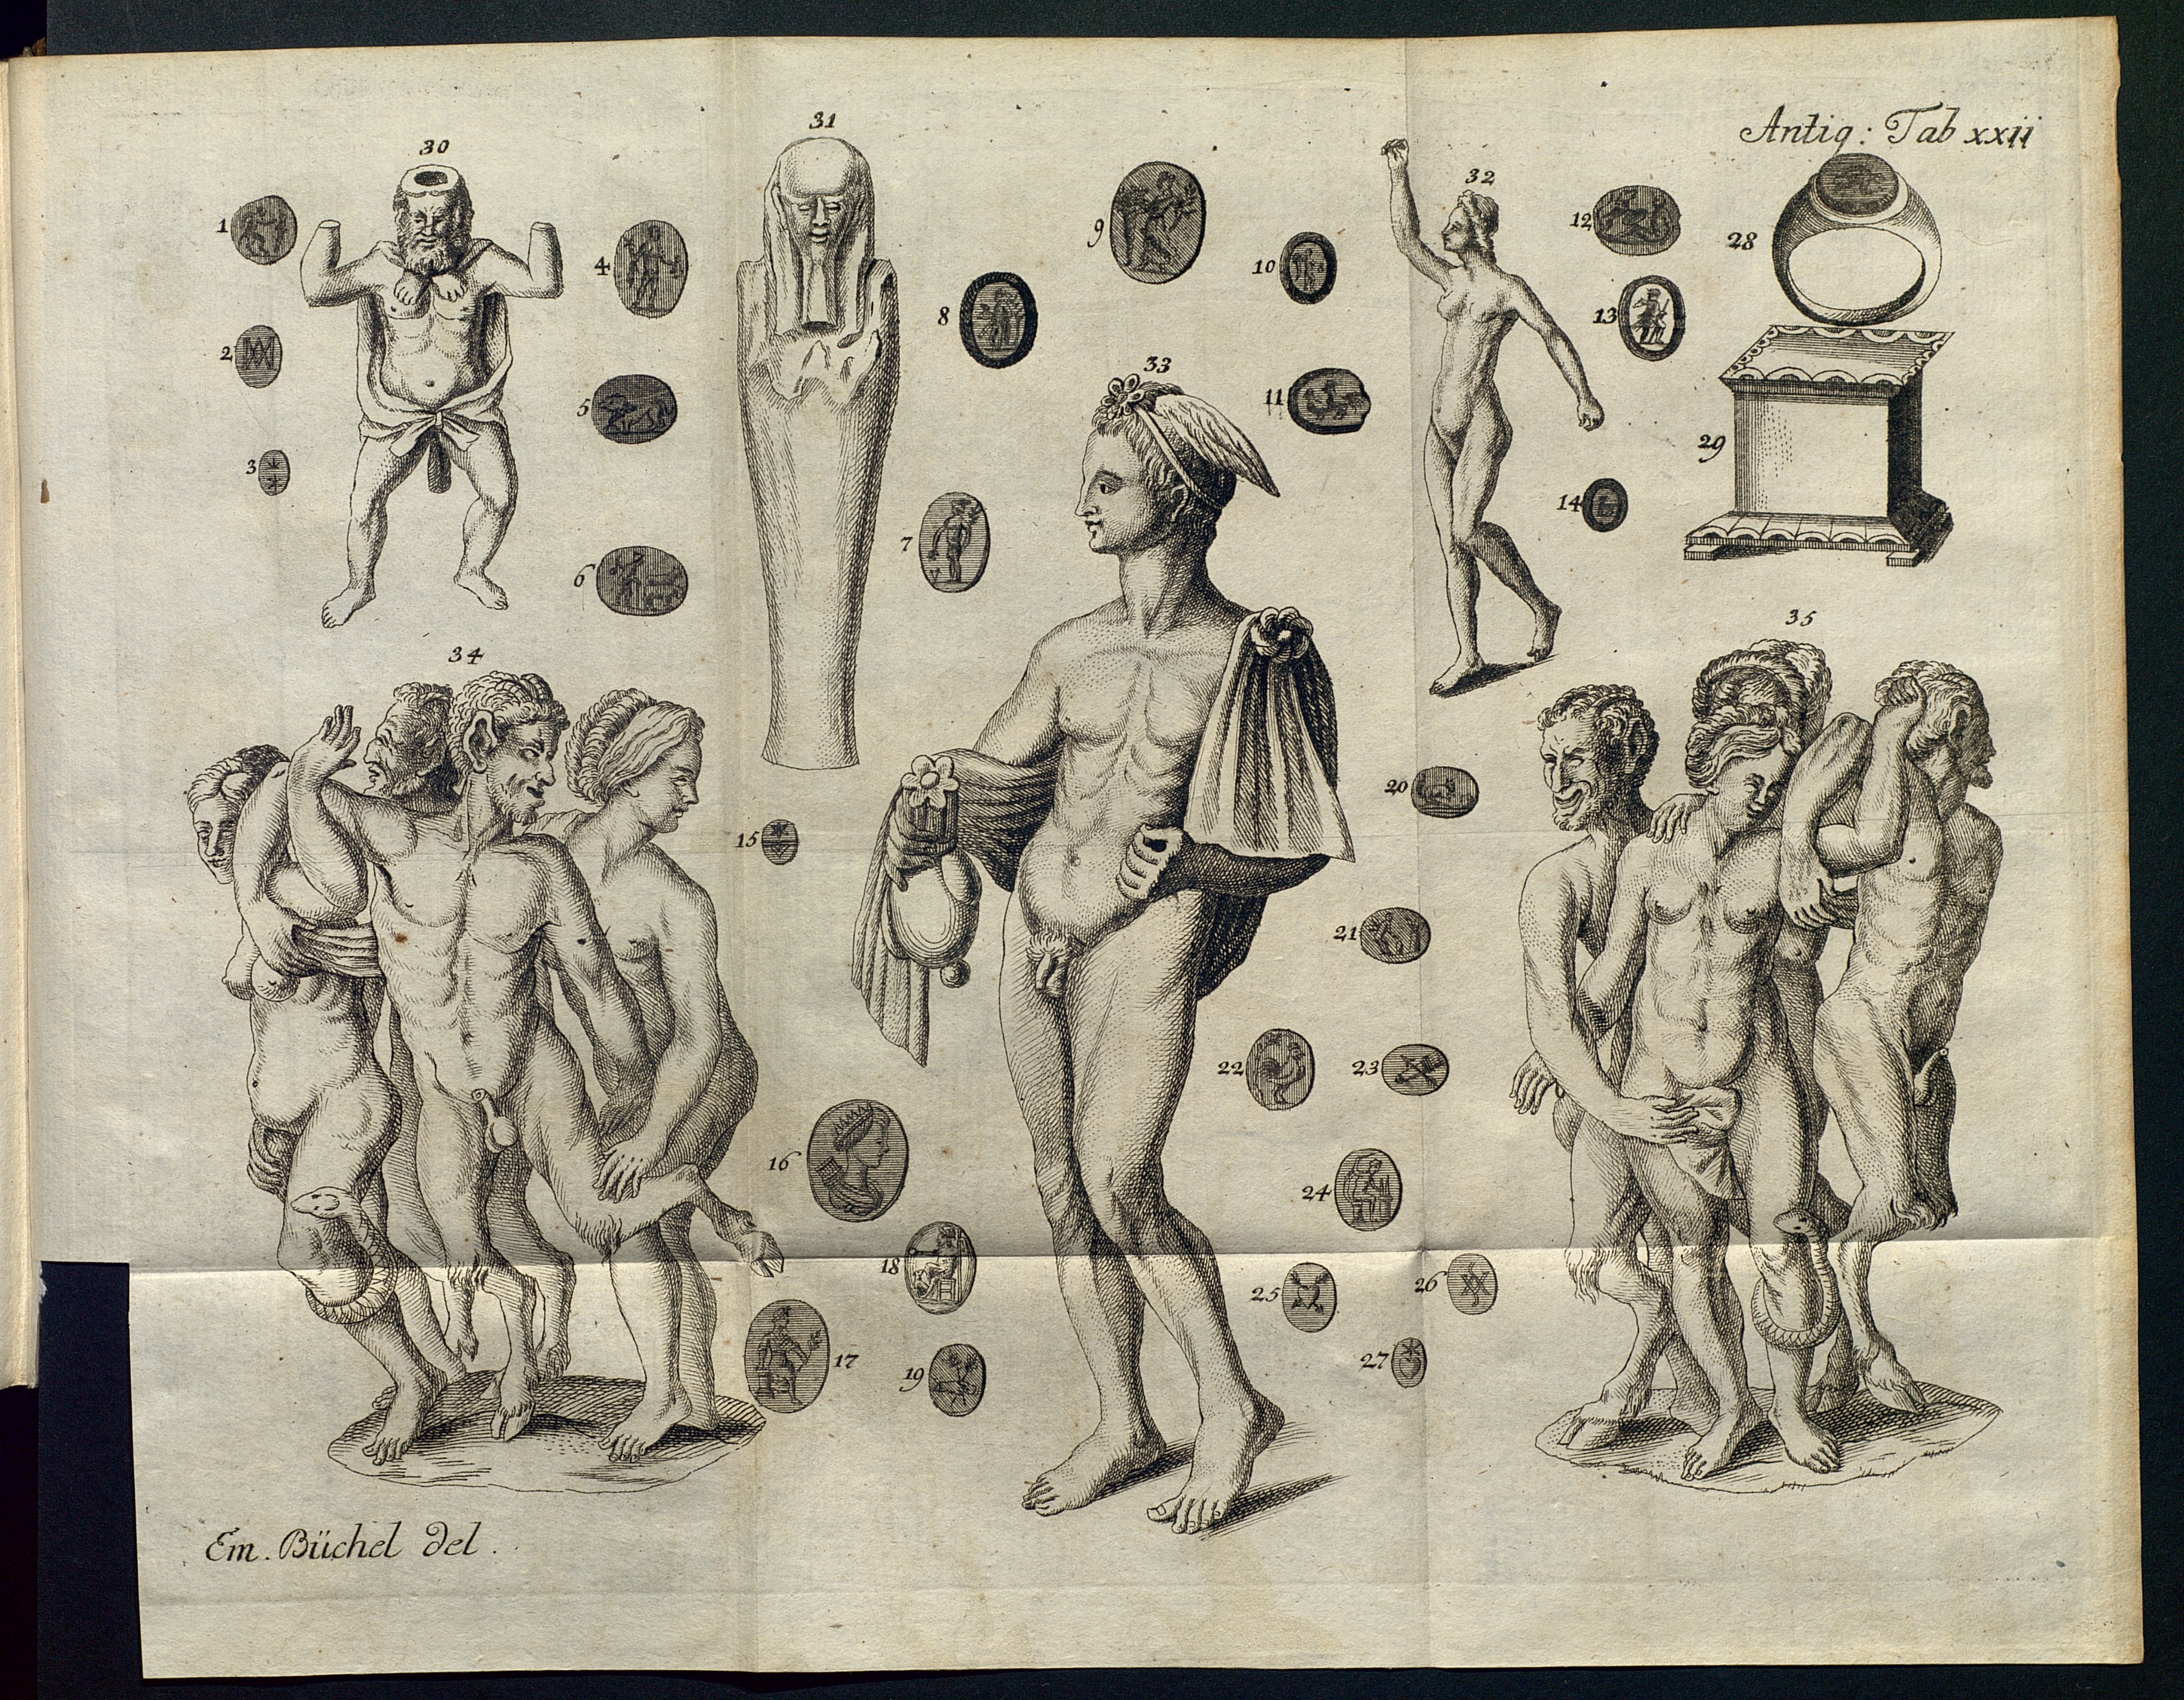 Antiq: Tab xxii
30
31
32
1
4
9
10
12
28
2
8
13
5
33
11
29
3
14
7
6
34
35
15
20
21
22
23
16
24
18
25
26
17
19
27
Em. Büchel del.